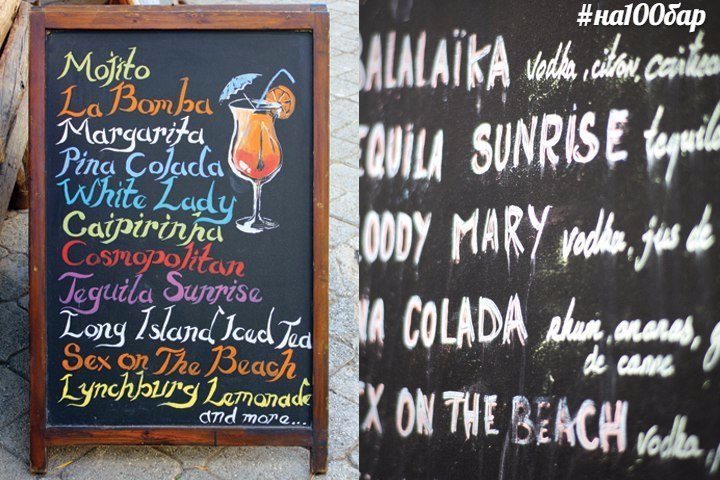 Mojito
La Bomba
Margarita
Pina Colada
White Lady
Caipirinha
Cosmopolitan
Teguila Sunrise
Long Island Iced Tea
Sex on The Beach
Lynchburg Lemonade
and more...
#на100бар
BALALAÏKA vodka, citron,
TEQUILA SUNRISE tequila
OODY MARY vodka, jus de
COLADA rhum, ananas,
de canne
EX ON THE BEACH vodka,